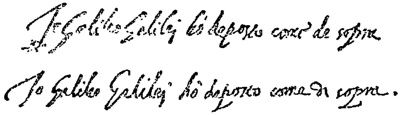 Io Galileo Galilej hò deposto come di sopra
Io Galileo Galilej hò deposto come di sopra.